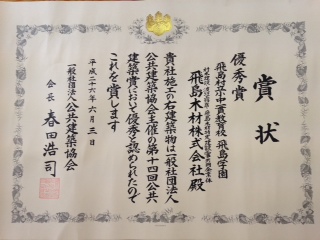 賞状
優秀賞
飛島村立小中一貫教育校 飛島学園
飛島木材株式会社殿
貴社施工の右建築物は一般社団法人
公共建築協会主催の第十四回公共
建築賞において優秀と認められたので
これを賞します
平成二十六年六月三日
一般社団法人公共建築協会
会長 春田浩司